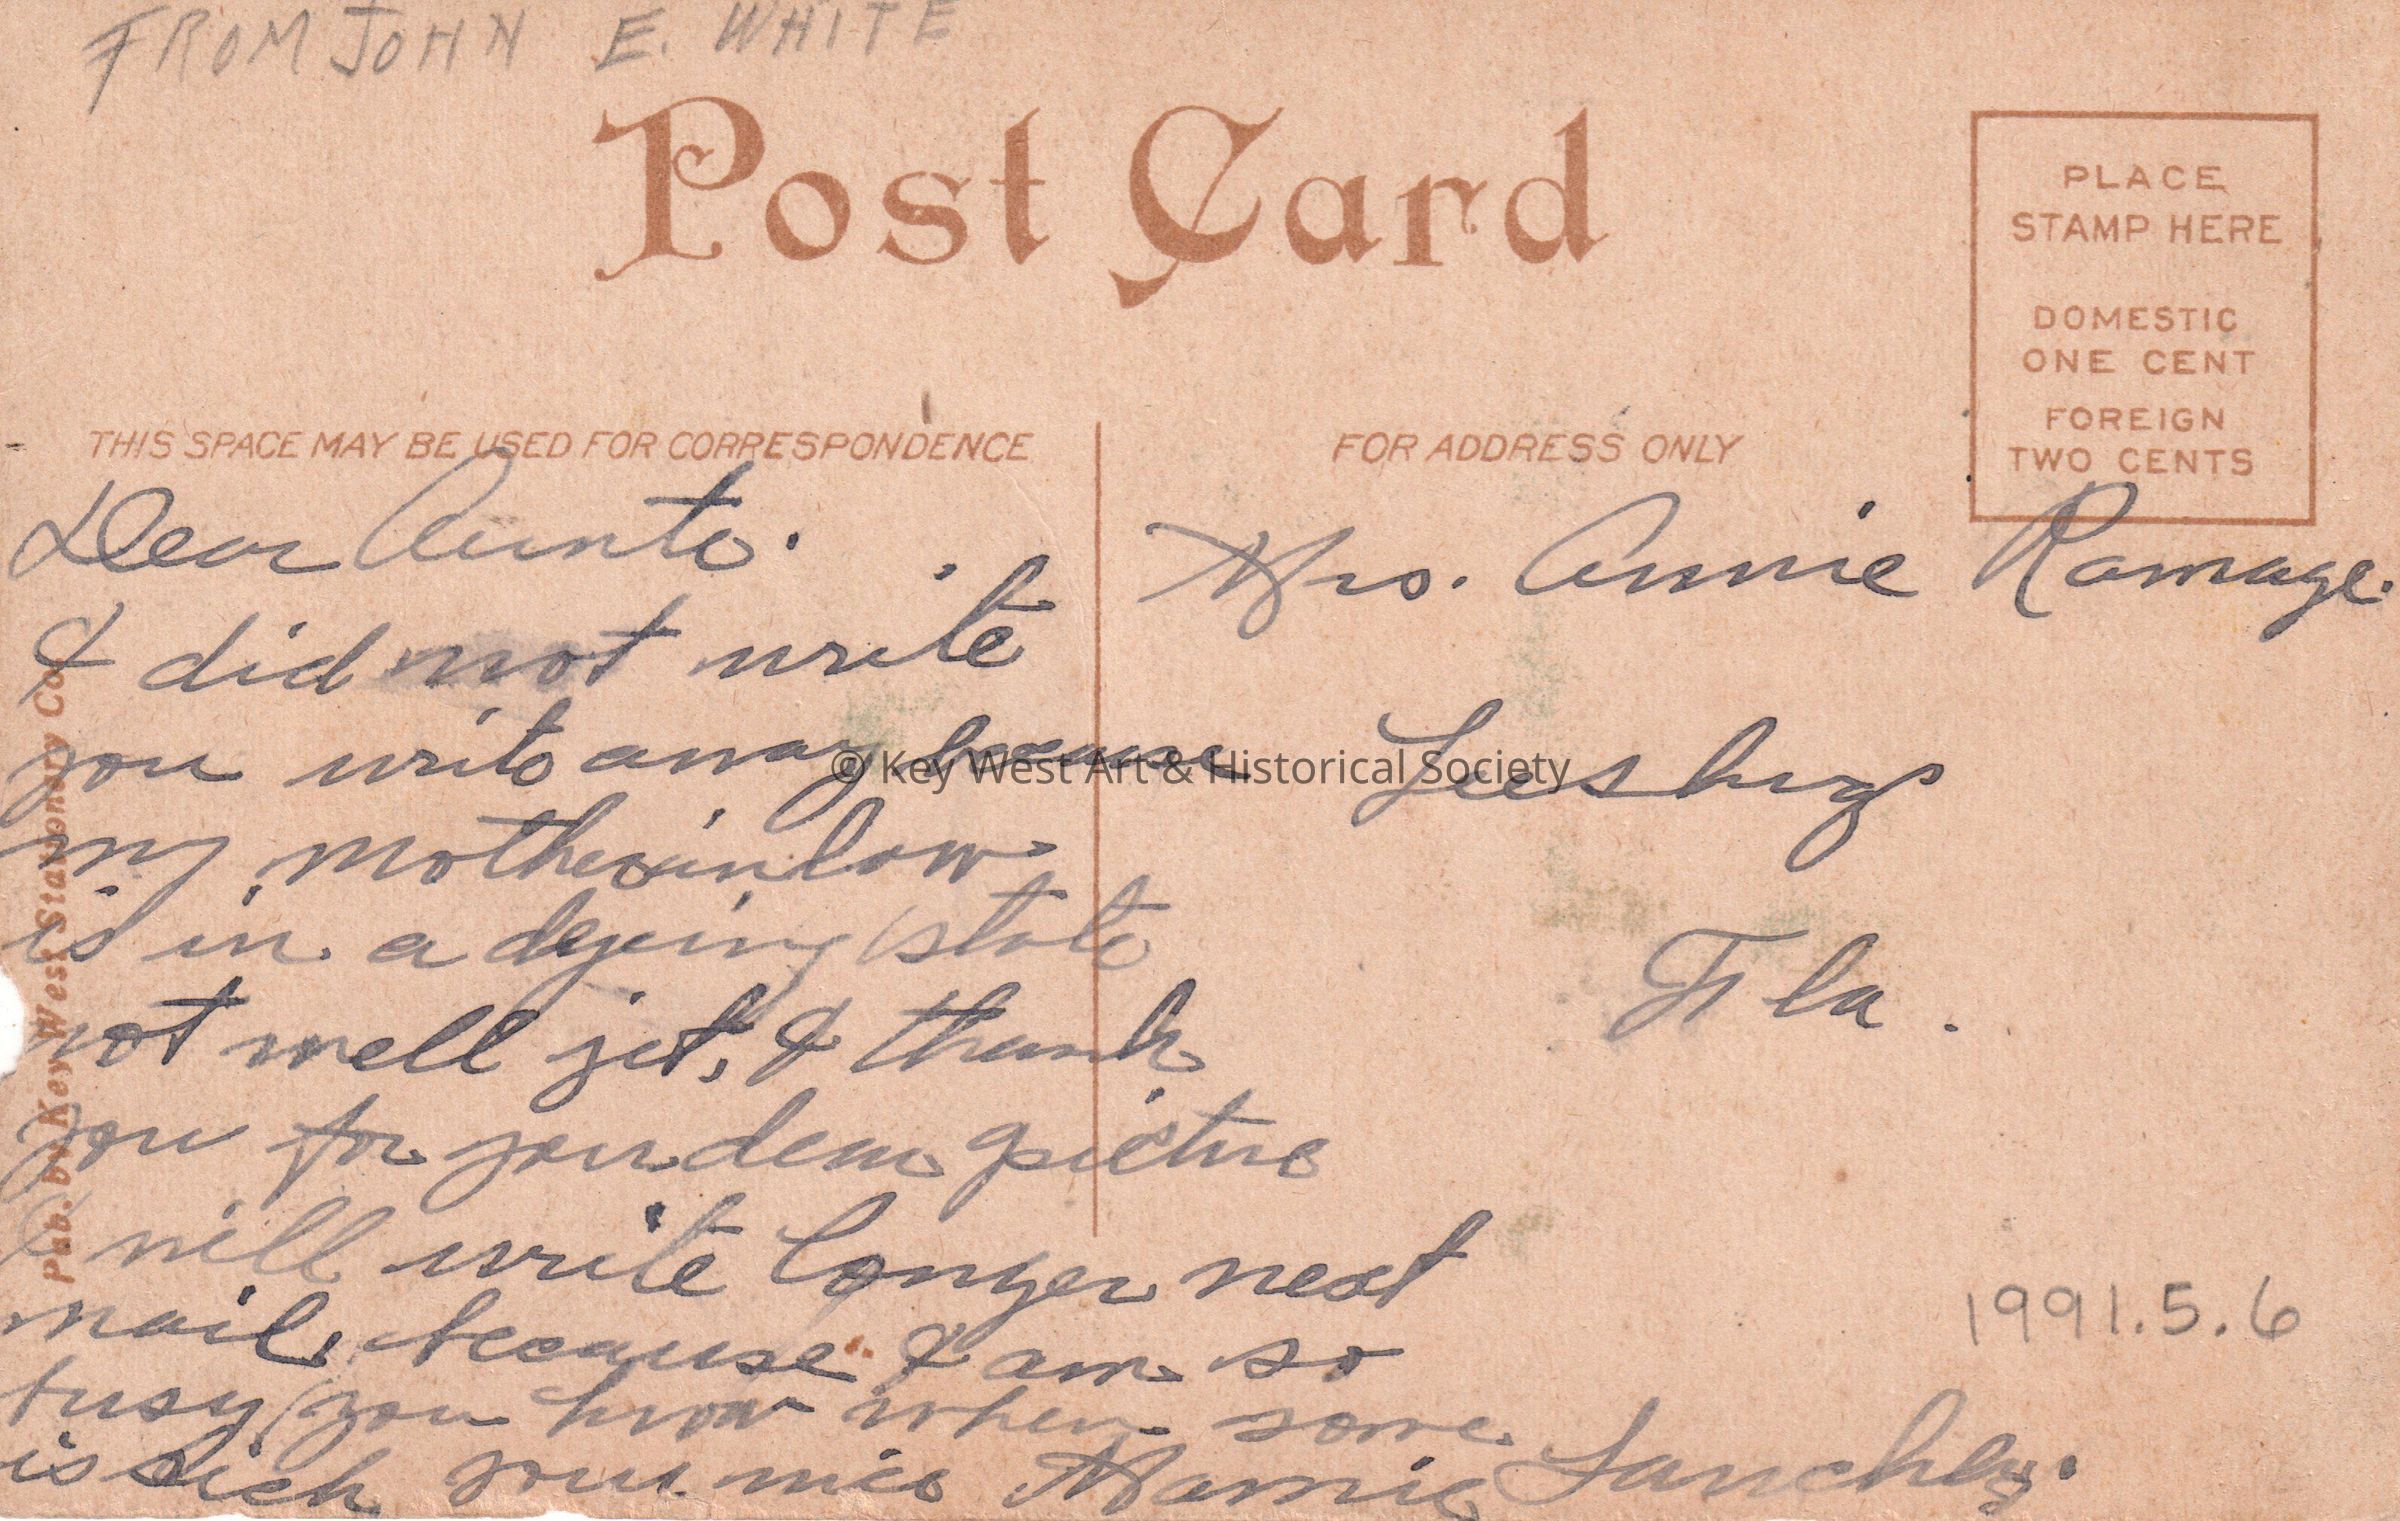 FROM JOHN E. WHITE
Post Card
PLACE
STAMP HERE
DOMESTIC
ONE CENT
FOREIGN
TWO CENTS
THIS SPACE MAY BE USED FOR CORRESPONDENCE
FOR ADDRESS ONLY
Dear Aunte.
I did not write
you write away because
my motherinlaw
is in a dying state
not well yet, I thank
you for your dear picture
I will write longer next
mail, because I am so
busy you know when some
is sick your niece Mamie
Mrs. Annie Ramage.
Leesburg
Fla.
1991.5.6
Pub. by Key West Stationery Co.
© Key West Art & Historical Society